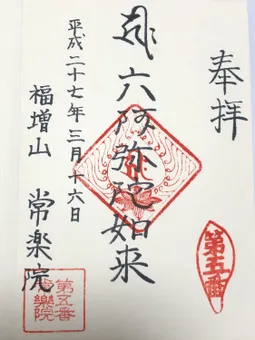 奉拝
第五番
六阿弥陀如来
平成二十七年三月十六日
福増山 常楽院
第五番
常楽院